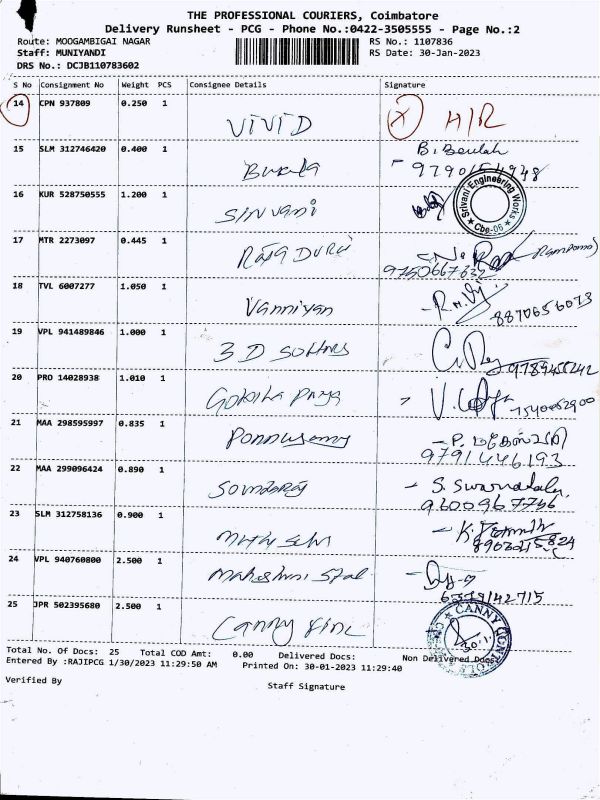 THE PROFESSIONAL COURIERS, Coimbatore
Delivery Runsheet - PCG - Phone No.:0422-3505555 - Page No.:2
Route: MOOGAMBIGAI NAGAR RS No.: 1107836
Staff: MUNIYANDI RS Date: 30-Jan-2023
DRS No.: DCJB110783602
S No Consignment No Weight PCS Consignee Details Signature
14 CPN 937809 0.250 1
VIVID X H/R
15 SLM 312746420 0.400 1 B. Beulah
16 KUR 528750555 1.200 1
Srivani Engineering Works
Cbe-06
17 MTR 2273097 0.445 1
Raja Durai
9750667632
18 TVL 6007277 1.050 1
Vanniyan 8870656073
19 VPL 941489846 1.000 1
3 D
20 PRO 14028938 1.010 1
Gokila Priya
21 MAA 298595997 0.835 1
Ponnusamy
9791446193
22 MAA 299096424 0.890 1
Soundaraj S. Swarnalala
9600967746
23 SLM 312758136 0.900 1
24 VPL 940760800 2.500 1
6379142715
25 JPR 502395680 2.500 1
Canny CANNY CONTROLS
Total No. Of Docs: 25 Total COD Amt: 0.00 Delivered Docs: Non Delivered Docs:
Entered By :RAJIPCG 1/30/2023 11:29:50 AM Printed On: 30-01-2023 11:29:40
Verified By Staff Signature